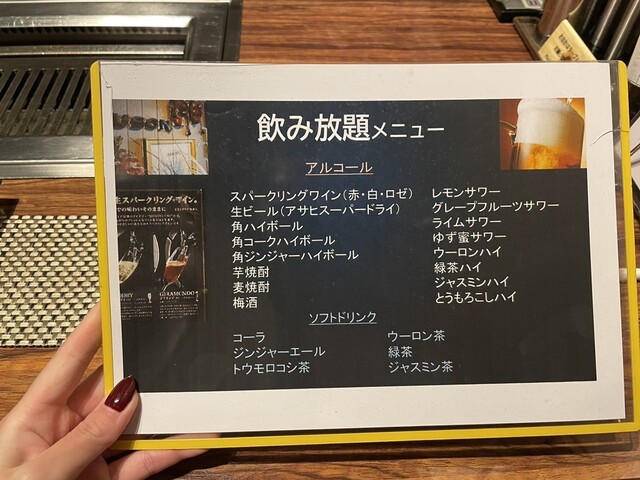 飲み放題メニュー
アルコール
スパークリングワイン(赤・白・ロゼ)
生ビール(アサヒスーパードライ)
角ハイボール
角コークハイボール
角ジンジャーハイボール
芋焼酎
麦焼酎
梅酒
レモンサワー
グレープフルーツサワー
ライムサワー
ゆず蜜サワー
ウーロンハイ
緑茶ハイ
ジャスミンハイ
とうもろこしハイ
ソフトドリンク
コーラ
ジンジャーエール
トウモロコシ茶
ウーロン茶
緑茶
ジャスミン茶
生スパークリングワイン。
での味わいそのままに
GERAMONDO